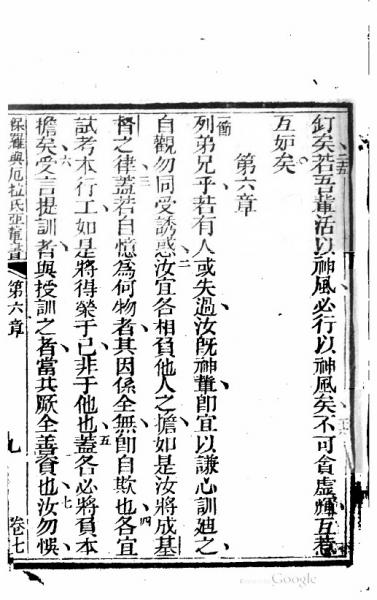 釘矣若吾輩活以神風必行以神風矣不可貪虛耀互惹
互妬矣
第六章
列弟兄乎若有人或失過汝既神輩即宜以謙心訓廸之
自觀勿同受誘惑汝宜各相負他人之擔如是汝將成基
督之律蓋若自憶為何物者其因係全無即自欺也各宜
試考本行工如是將得榮于己非于他也蓋各必將負本
擔矣受言提訓者與授訓之者當共厥全善資也汝勿悞
保羅與厄拉氏亞輩書
第六章
九
卷七
Google